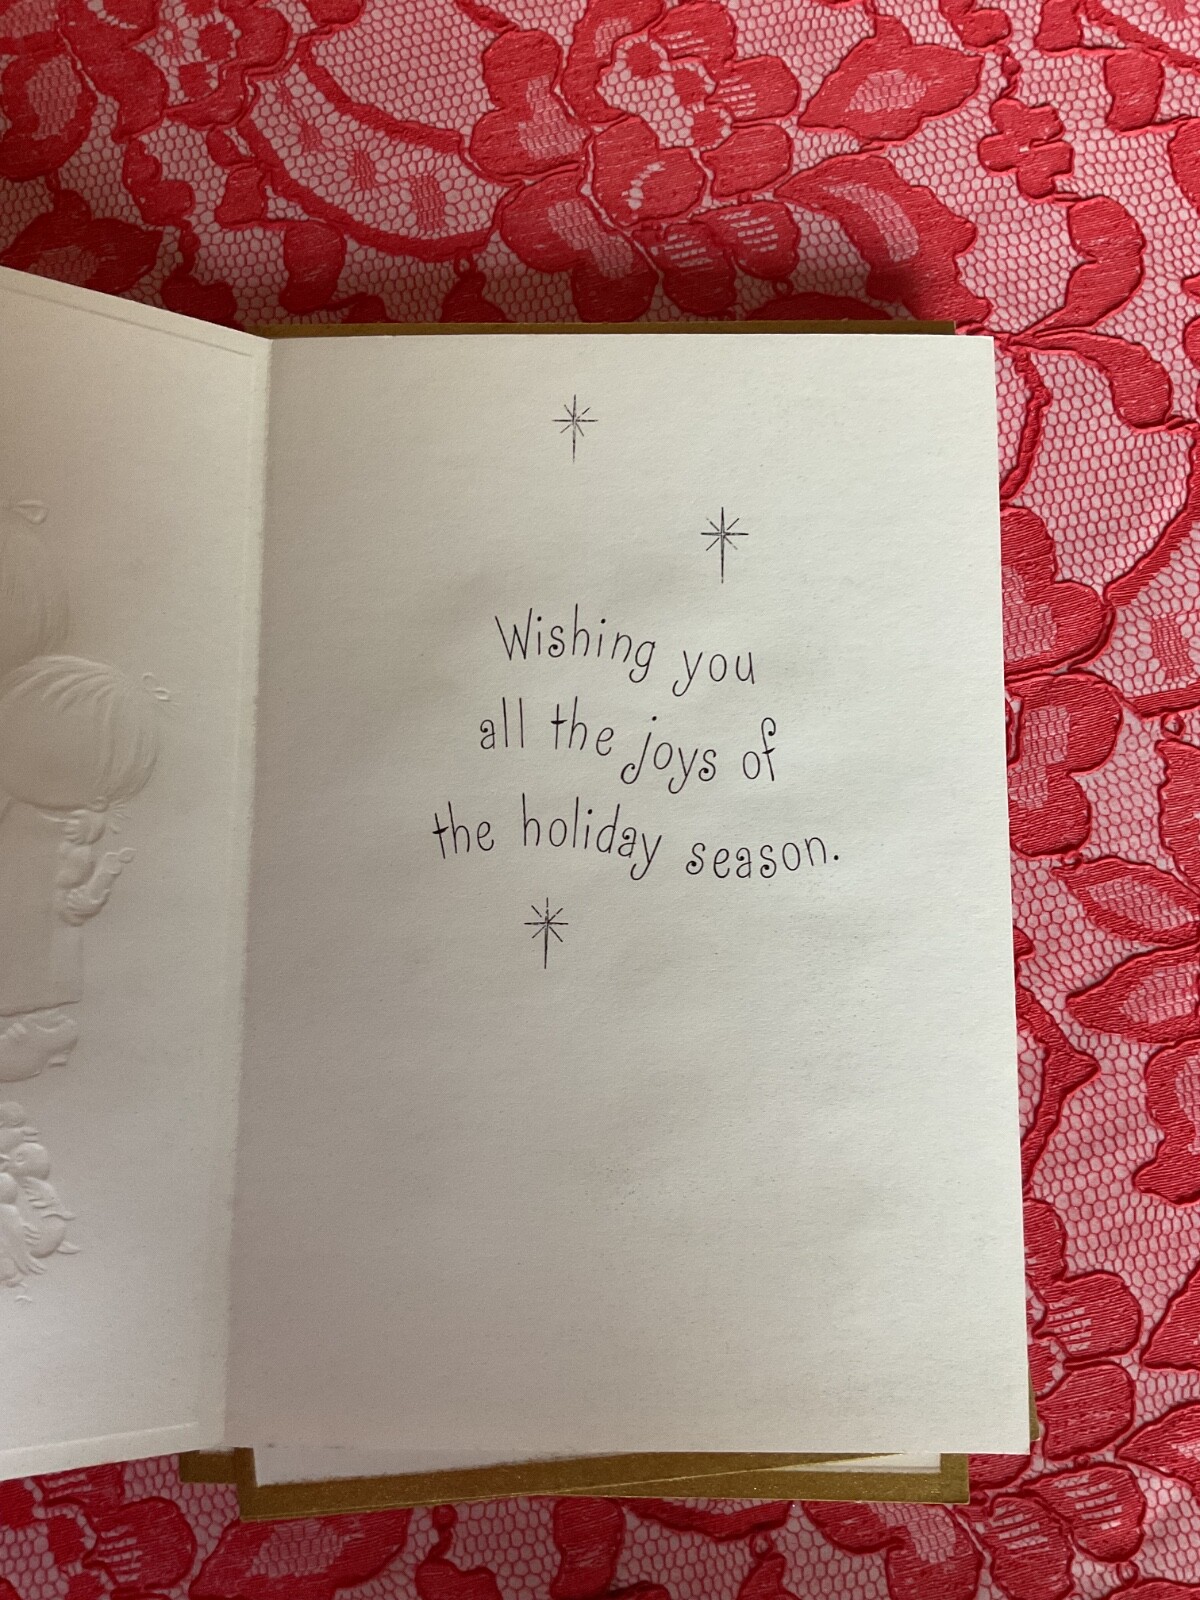 Wishing you
all the joys of
the holiday season.